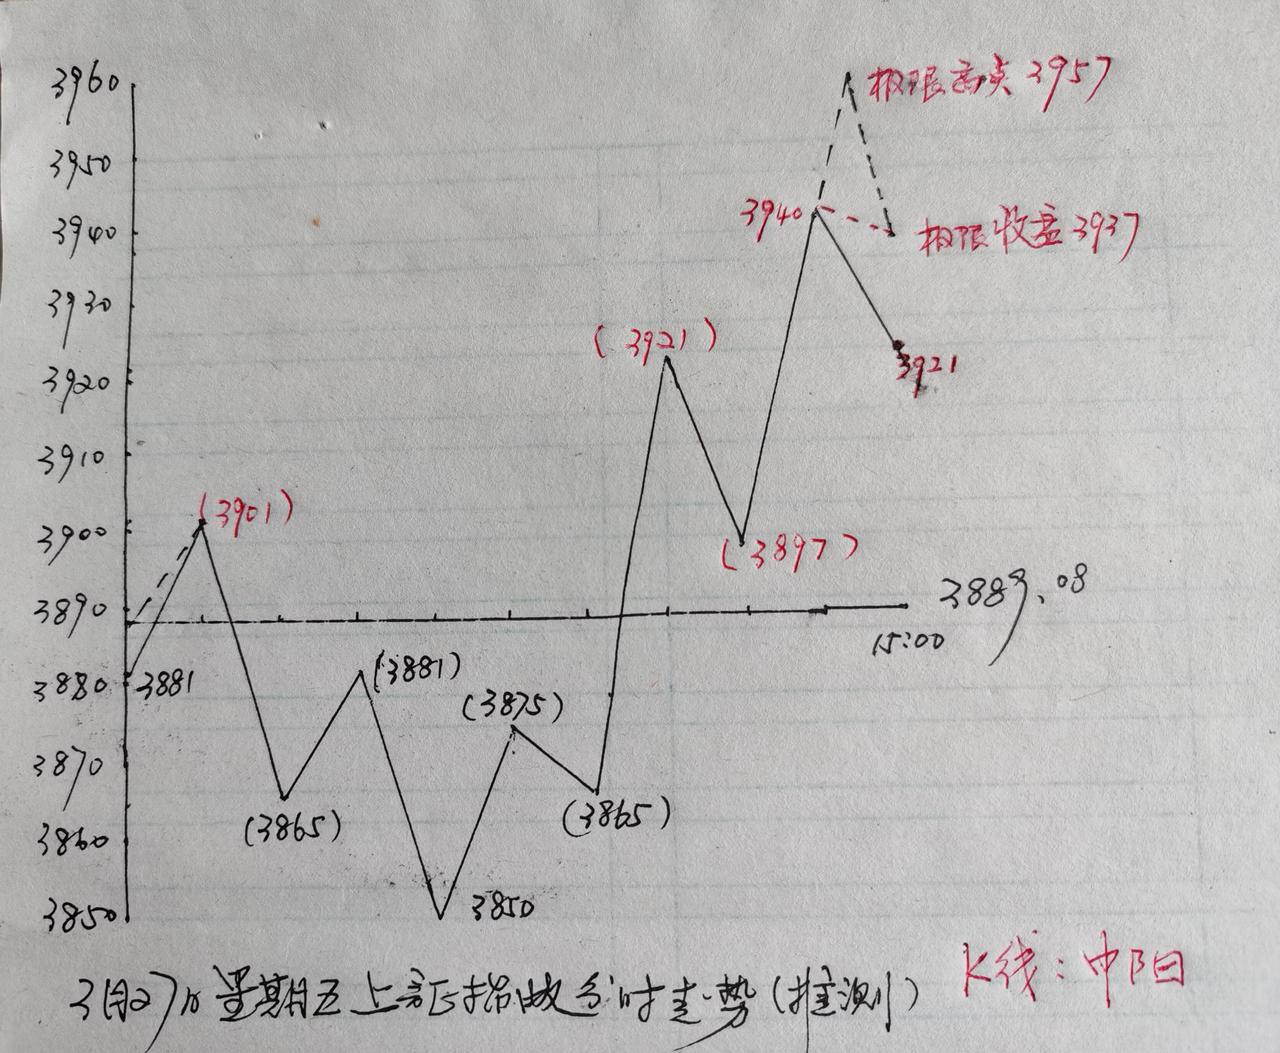 3960
极限高点 3957
3950
3940
3940
极限收盘 3937
3930
(3921)
3920
3921
3910
(3901)
3900
(3897)
3890
3889.08
15:00
3880
3881
(3881)
(3875)
3870
(3865)
(3865)
3860
3850
3850
3月27日星期五上证指数分时走势(推测)
K线:中阳